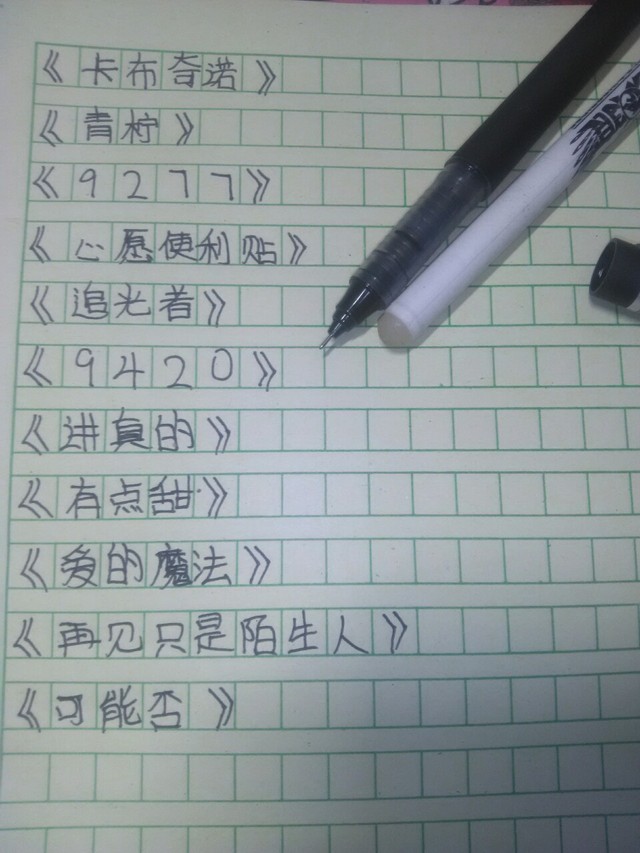 《卡布奇诺》
《青柠》
《9277》
《心愿便利贴》
《追光者》
《9420》
《讲真的》
《有点甜》
《爱的魔法》
《再见只是陌生人》
《可能否》